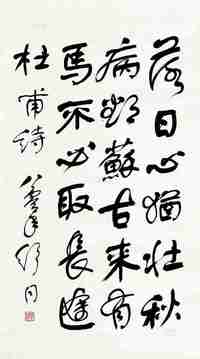 落日心猶壯秋
病欲蘇古來有
馬不必取長途
杜甫詩 舒同